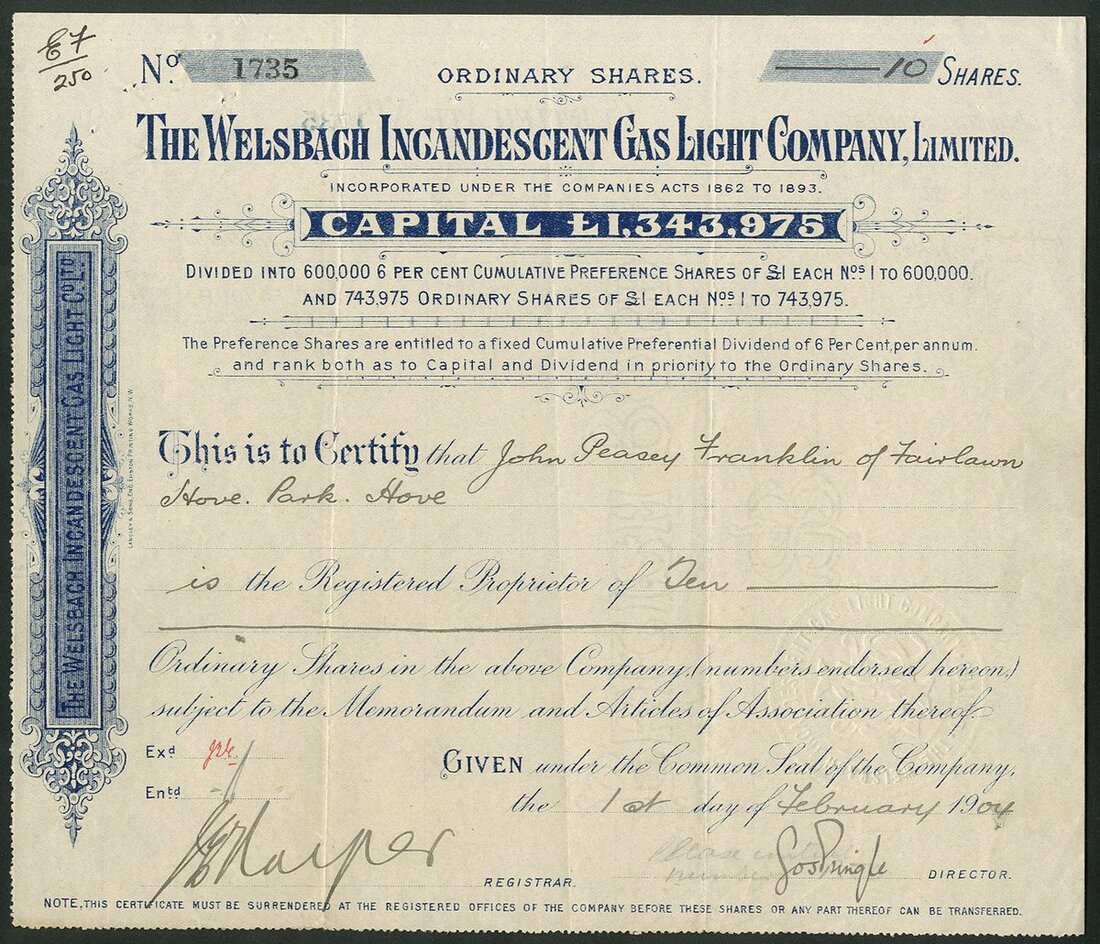 E7
250
No. 1735
ORDINARY SHARES.
10 SHARES.
THE WELSBACH INCANDESCENT GAS LIGHT COMPANY, LIMITED.
INCORPORATED UNDER THE COMPANIES ACTS 1862 TO 1893.
CAPITAL £1,343,975
DIVIDED INTO 600,000 6 PER CENT CUMULATIVE PREFERENCE SHARES OF £1 EACH Nos 1 TO 600,000.
AND 743,975 ORDINARY SHARES OF £1 EACH Nos 1 TO 743,975.
The Preference Shares are entitled to a fixed Cumulative Preferential Dividend of 6 Per Cent, per annum.
and rank both as to Capital and Dividend in priority to the Ordinary Shares.
THE WELSBACH INCANDESCENT GAS LIGHT Co LTD
LANGLEY & SONS, LONDON PRINTING WORKS, N.W.
This is to Certify that John Peasey Franklin of Fairlawn
Hove. Park. Hove
is the Registered Proprietor of Ten
Ordinary Shares in the above Company, (numbers endorsed hereon)
subject to the Memorandum and Articles of Association thereof.
Exd
Entd
GIVEN under the Common Seal of the Company,
the 1st day of February 1904
Harper
REGISTRAR.
Pringle
DIRECTOR.
NOTE, THIS CERTIFICATE MUST BE SURRENDERED AT THE REGISTERED OFFICES OF THE COMPANY BEFORE THESE SHARES OR ANY PART THEREOF CAN BE TRANSFERRED.